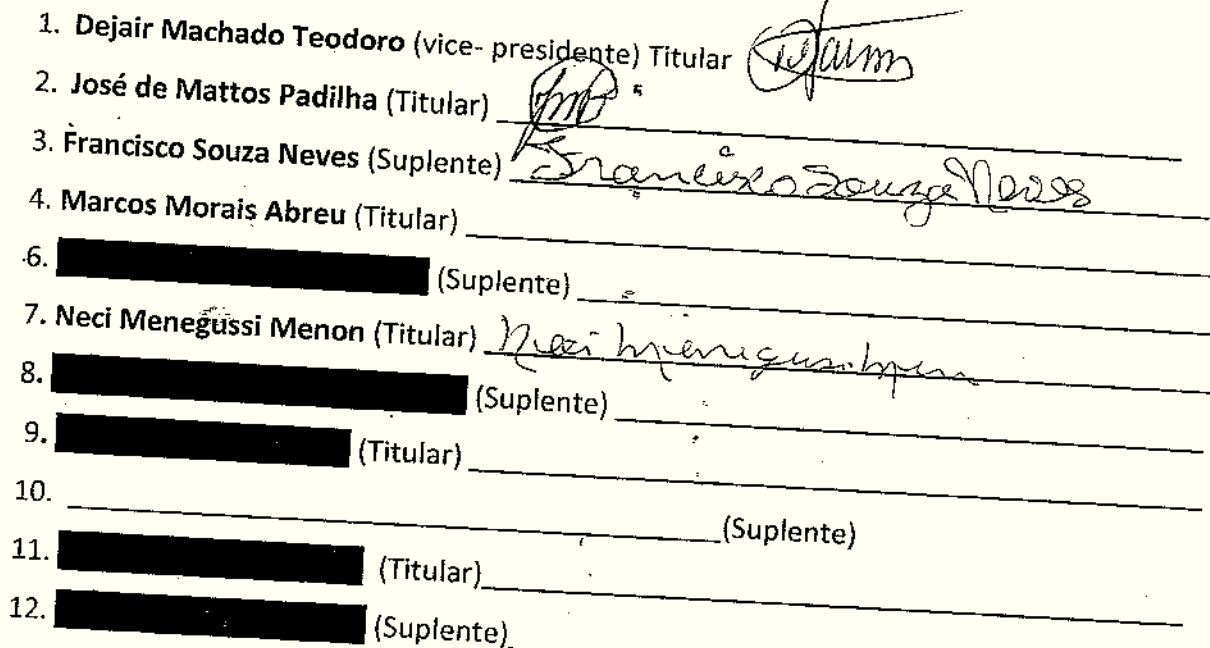 1. Dejair Machado Teodoro (vice- presidente) Titular
2. José de Mattos Padilha (Titular)
3. Francisco Souza Neves (Suplente) Francisco Souza Neves
4. Marcos Morais Abreu (Titular)
6. (Suplente)
7. Neci Menegussi Menon (Titular) Neci
8. (Suplente)
9. (Titular)
10. (Suplente)
11. (Titular)
12. (Suplente)